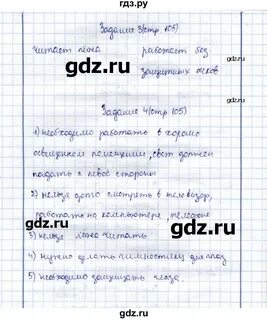 gdz.ru
Задание 3(стр 105)
читает лёжа работает без
защитных очков
gdz.ru
Задание 4(стр 105)
1) необходимо работать в хорошо
освещённом помещении, свет должен
падать с левой стороны
2) нельзя долго смотреть в телевизор,
работать на компьютере, телефоне
3) нельзя лёжа читать
4) нужно делать гимнастику для глаз
5) необходимо защищать глаза.
gdz.ru